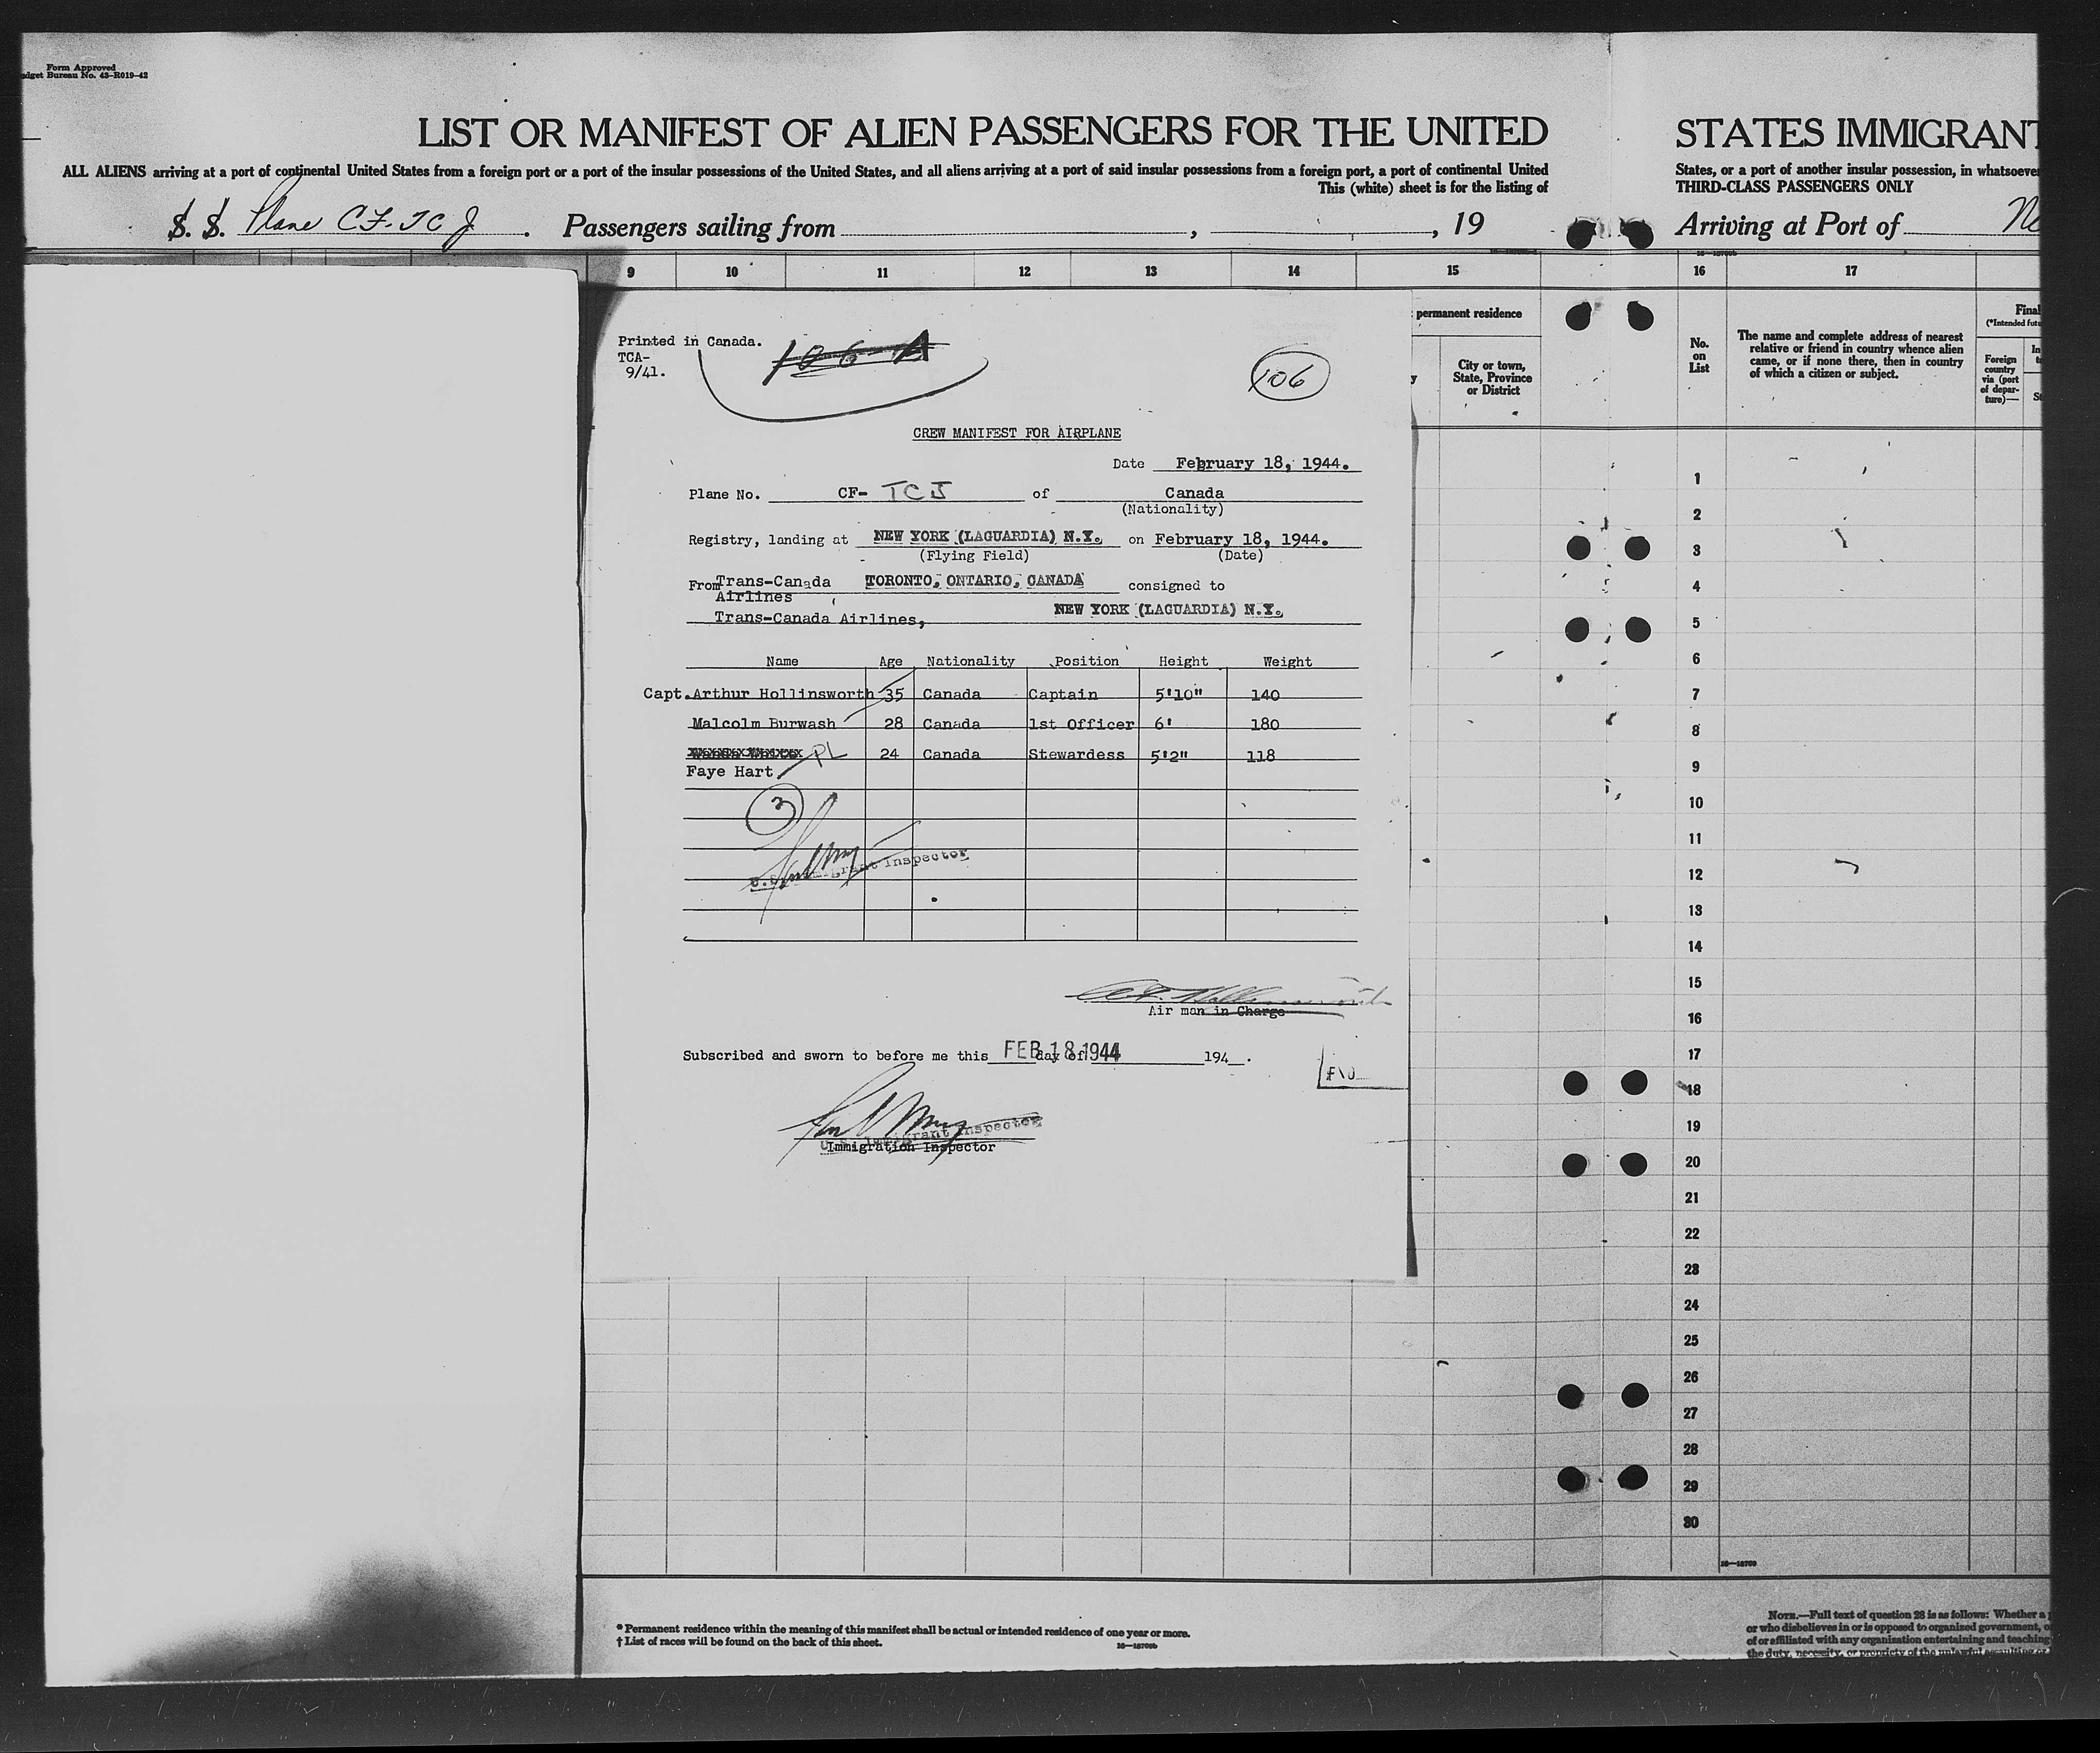 Form Approved
dget Bureau No. 43-R019-42
LIST OR MANIFEST OF ALIEN PASSENGERS FOR THE UNITED
STATES IMMIGRANT
ALL ALIENS arriving at a port of continental United States from a foreign port or a port of the insular possessions of the United States, and all aliens arriving at a port of said insular possessions from a foreign port, a port of continental United
States, or a port of another insular possession, in whatsoever
This (white) sheet is for the listing of
THIRD-CLASS PASSENGERS ONLY
S. S. Plane CF-TCJ. Passengers sailing from , , 19
Arriving at Port of Ne
9 10 11 12 13 14 15 16 17
permanent residence
City or town,
State, Province
or District
No.
on
List
The name and complete address of nearest
relative or friend in country whence alien
came, or if none there, then in country
of which a citizen or subject.
Final
(*Intended futu
Foreign
country
via (port
of depar-
ture)—
Printed in Canada.
TCA-
9/41.
106-A
106
CREW MANIFEST FOR AIRPLANE
Date February 18, 1944.
Plane No. CF- TCJ of Canada
(Nationality)
Registry, landing at NEW YORK (LAGUARDIA) N.Y. on February 18, 1944.
(Flying Field) (Date)
From Trans-Canada TORONTO, ONTARIO, CANADA consigned to
Airlines
Trans-Canada Airlines, NEW YORK (LAGUARDIA) N.Y.
Name Age Nationality Position Height Weight
Capt. Arthur Hollinsworth 35 Canada Captain 5'10" 140
Malcolm Burwash 28 Canada 1st Officer 6' 180
PL 24 Canada Stewardess 5'2" 118
Faye Hart
3
U.S. Immigrant Inspector
Air man in Charge
Subscribed and sworn to before me this FEB 18 1944 day of 194 .
U.S. Immigrant Inspector
Immigration Inspector
1
2
3
4
5
6
7
8
9
10
11
12
13
14
15
16
17
18
19
20
21
22
23
24
25
26
27
28
29
30
16—18709
* Permanent residence within the meaning of this manifest shall be actual or intended residence of one year or more.
† List of races will be found on the back of this sheet.
16—18709b
NOTE.—Full text of question 28 is as follows: Whether a
or who disbelieves in or is opposed to organized government, o
of or affiliated with any organization entertaining and teaching
the duty, necessity, or propriety of the unlawful assaulting or